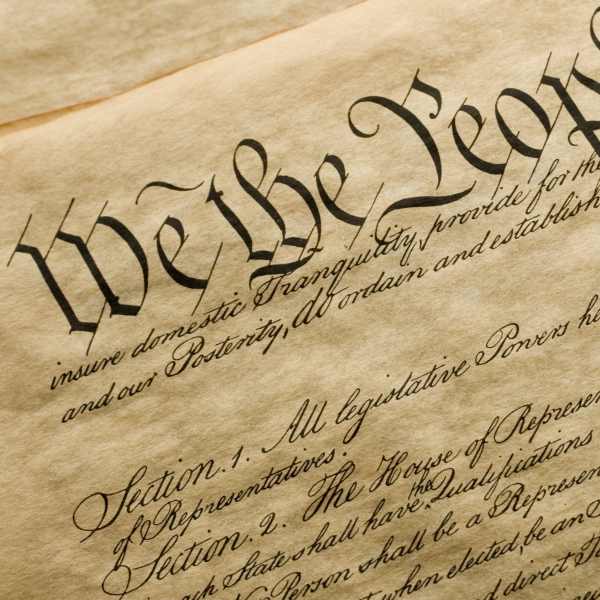 We the Peop
insure domestic Tranquility, provide for the
and our Posterity, do ordain and establish
Section. 1. All legislative Powers he
of Representatives.
Section. 2. The House of Represen
the
ach State shall have Qualifications
Person shall be a Represen
when elected, be an
and direct Ta